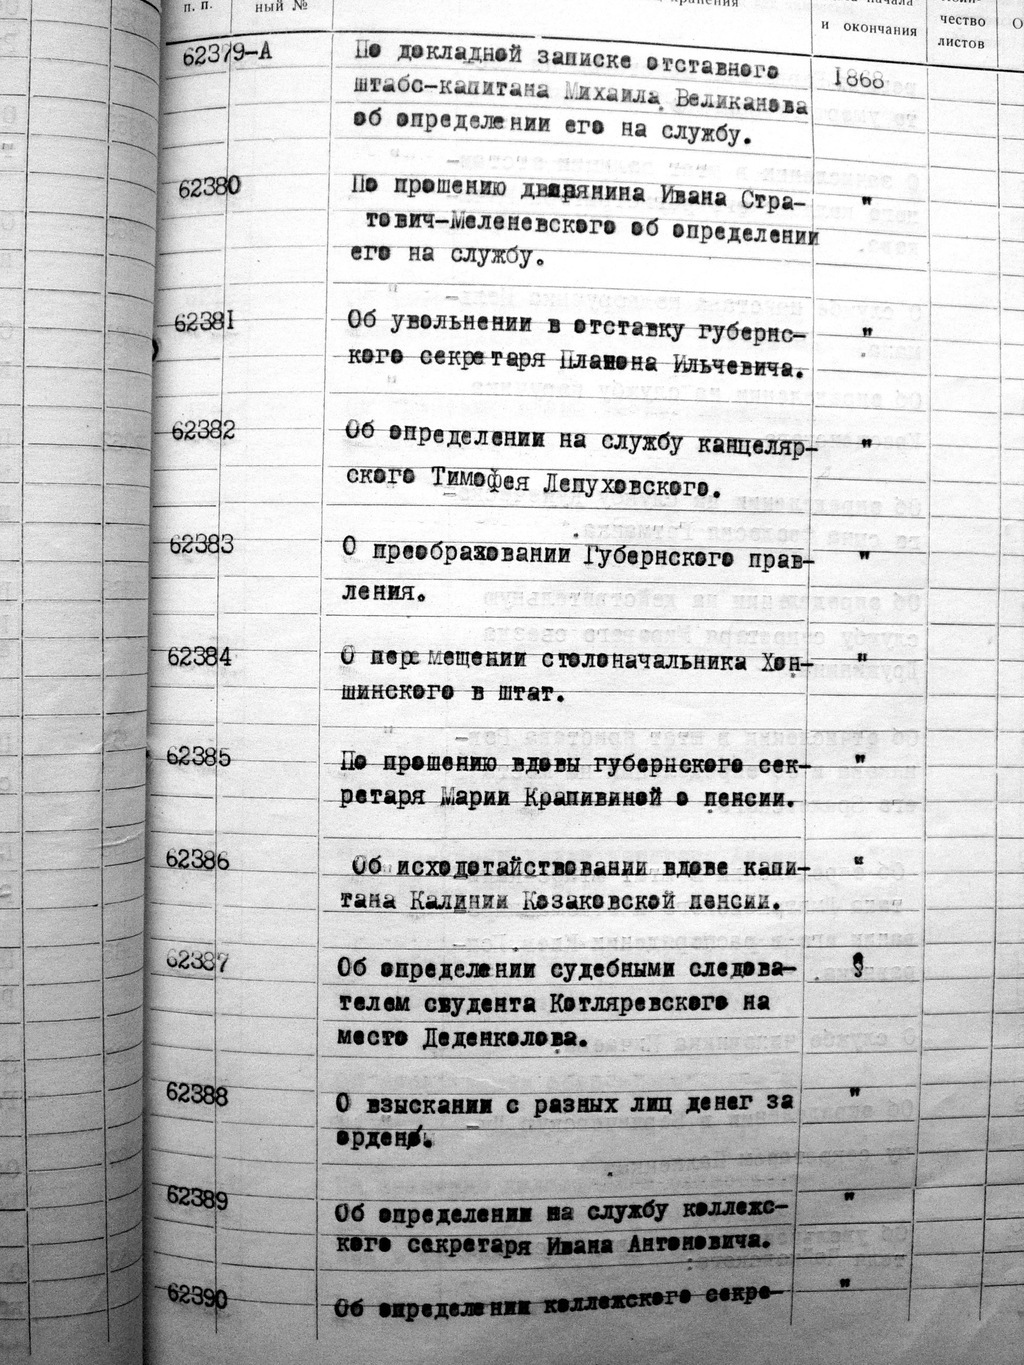 п. п.
ный №
хранения
и окончания
чество
листов
62379-А По докладной записке отставного 1868
штабс-капитана Михаила Великанова
об определении его на службу.
62380 По прошению дворянина Ивана Стра- "
тович-Меленевского об определении
его на службу.
62381 Об увольнении в отставку губернс- "
кого секретаря Платона Ильчевича.
62382 Об определении на службу канцеляр- "
ского Тимофея Лепуховского.
62383 О преобразовании Губернского прав- "
ления.
62384 О перемещении столоначальника Хон- "
шинского в штат.
62385 По прошению вдовы губернского сек- "
ретаря Марии Крапивиной о пенсии.
62386 Об исходотайствовании вдове капи- "
тана Калинии Козаковской пенсии.
62387 Об определении судебными следова- "
телем сvудента Котляревского на
место Деденколова.
62388 О взыскании с разных лиц денег за "
ордена.
62389 Об определении на службу коллежс- "
кого секретаря Ивана Антоновича.
62390 Об определении коллежского секре- "